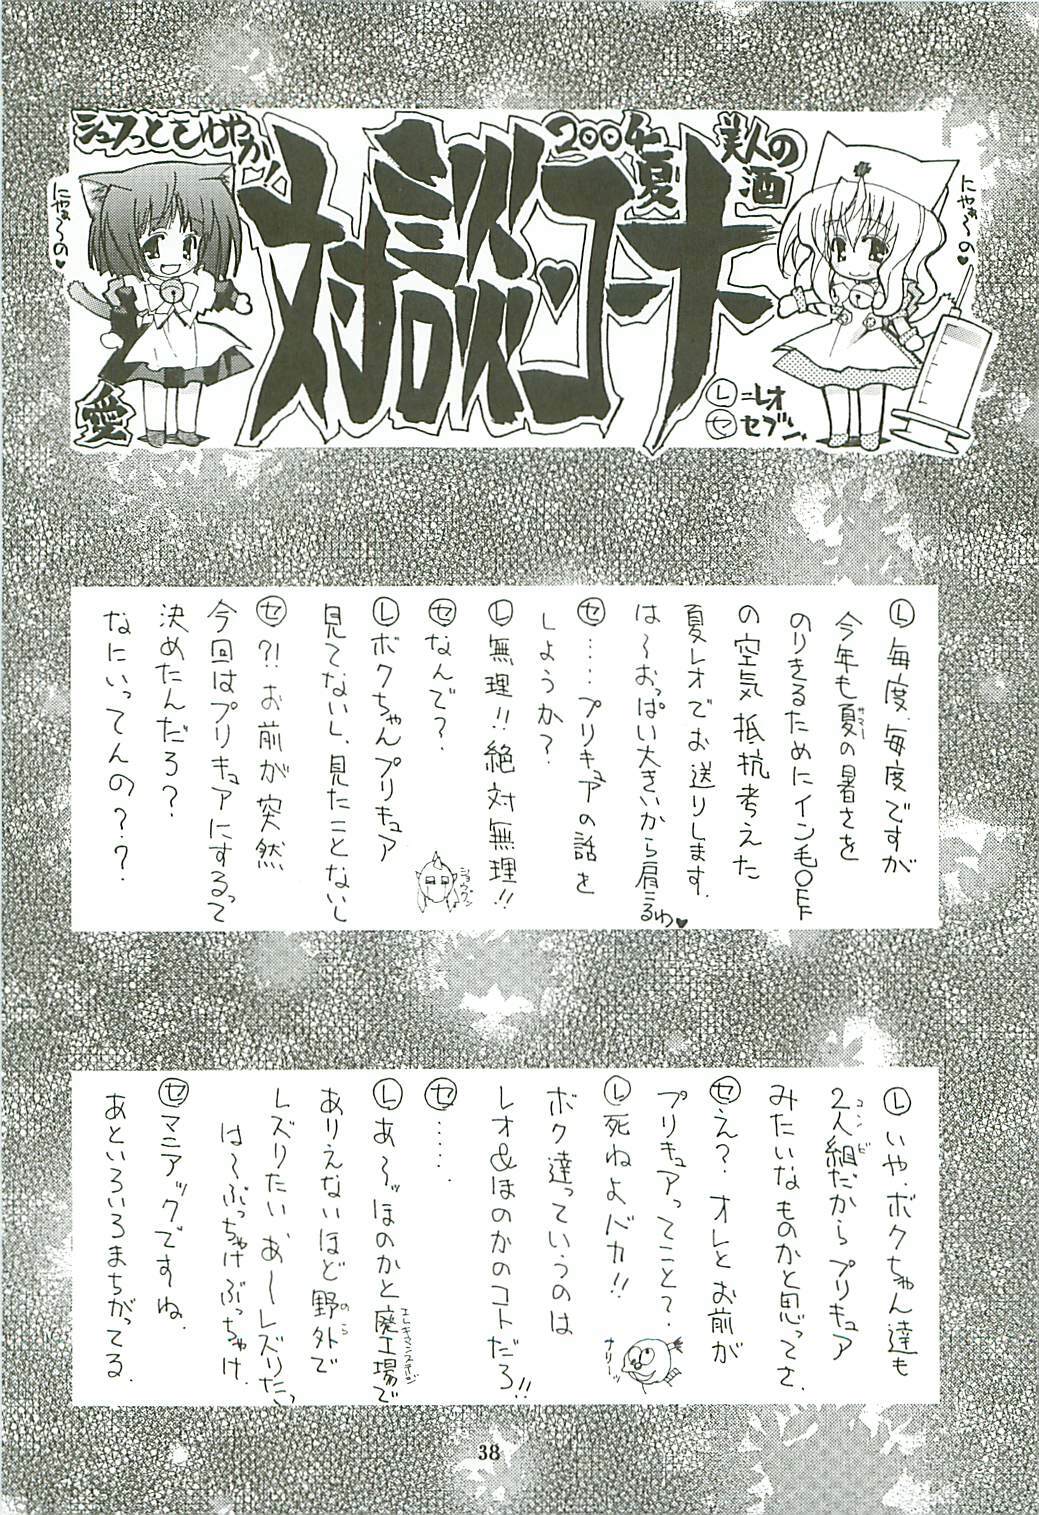 シュワっとこひゅやか!
2004夏
美人の酒
対談♥コーナー
にゃぁ〜の♥
にゃぁ〜の♥
愛
Ⓛ=レオ
㋝=セブン
Ⓛ毎度、毎度ですが
今年も夏の暑さを
サマー
のりきるためにインモOFF
の空気抵抗考えた
夏レオでお送りします.
は〜おっぱい大きいから肩こるわ♥
㋝……プリキュアの話を
しようか?
Ⓛ無理!!絶対無理!!
㋝なんで?
Ⓛボクちゃんプリキュア
見てないし、見たことないし
㋝?!お前が突然
今回はプリキュアにするって
決めたんだろ?
なにいってんの??
ショウグン
Ⓛいや、ボクちゃん達も
2人組だからプリキュア
コンビ
みたいなものかと思ってさ.
㋝え?オレとお前が
プリキュアってこと?
Ⓛ死ねよバカ!!
ボク達っていうのは
レオ&ほのかのコトだろ!!
㋝……
Ⓛあ〜ッほのかと廃工場で
エレキマンステージ
ありえないほど野外で
のら
レズりたいあーレズりたい
は〜ぶっちゃけぶっちゃけ.
㋝マニアックですね.
あといろいろまちがってる.
ナリーッ
38